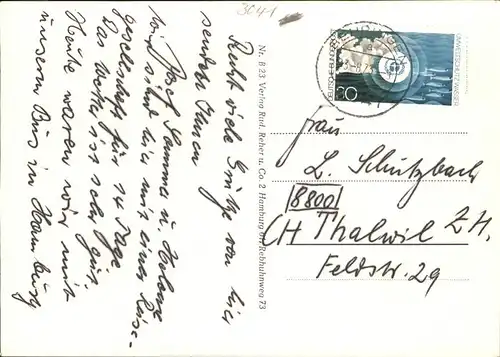 3041
Recht viele Grüße von hier
senden Ihnen
Josef Sammer u. Helene
wir sind hier mit einer Reise-
gesellschaft für 14 Tage.
Das Wetter ist sehr gut
Heute waren wir mit
unserem Bus in Hamburg
Nr. B 23 Verlag Rud. Reher u. Co. 2 Hamburg 60 Rebhuhnweg 73
DEUTSCHE BUNDESPOST
UMWELTSCHUTZ WASSER
30
Frau
L. Schutzbach
8800
CH Thalwil ZH.
Feldstr. 29